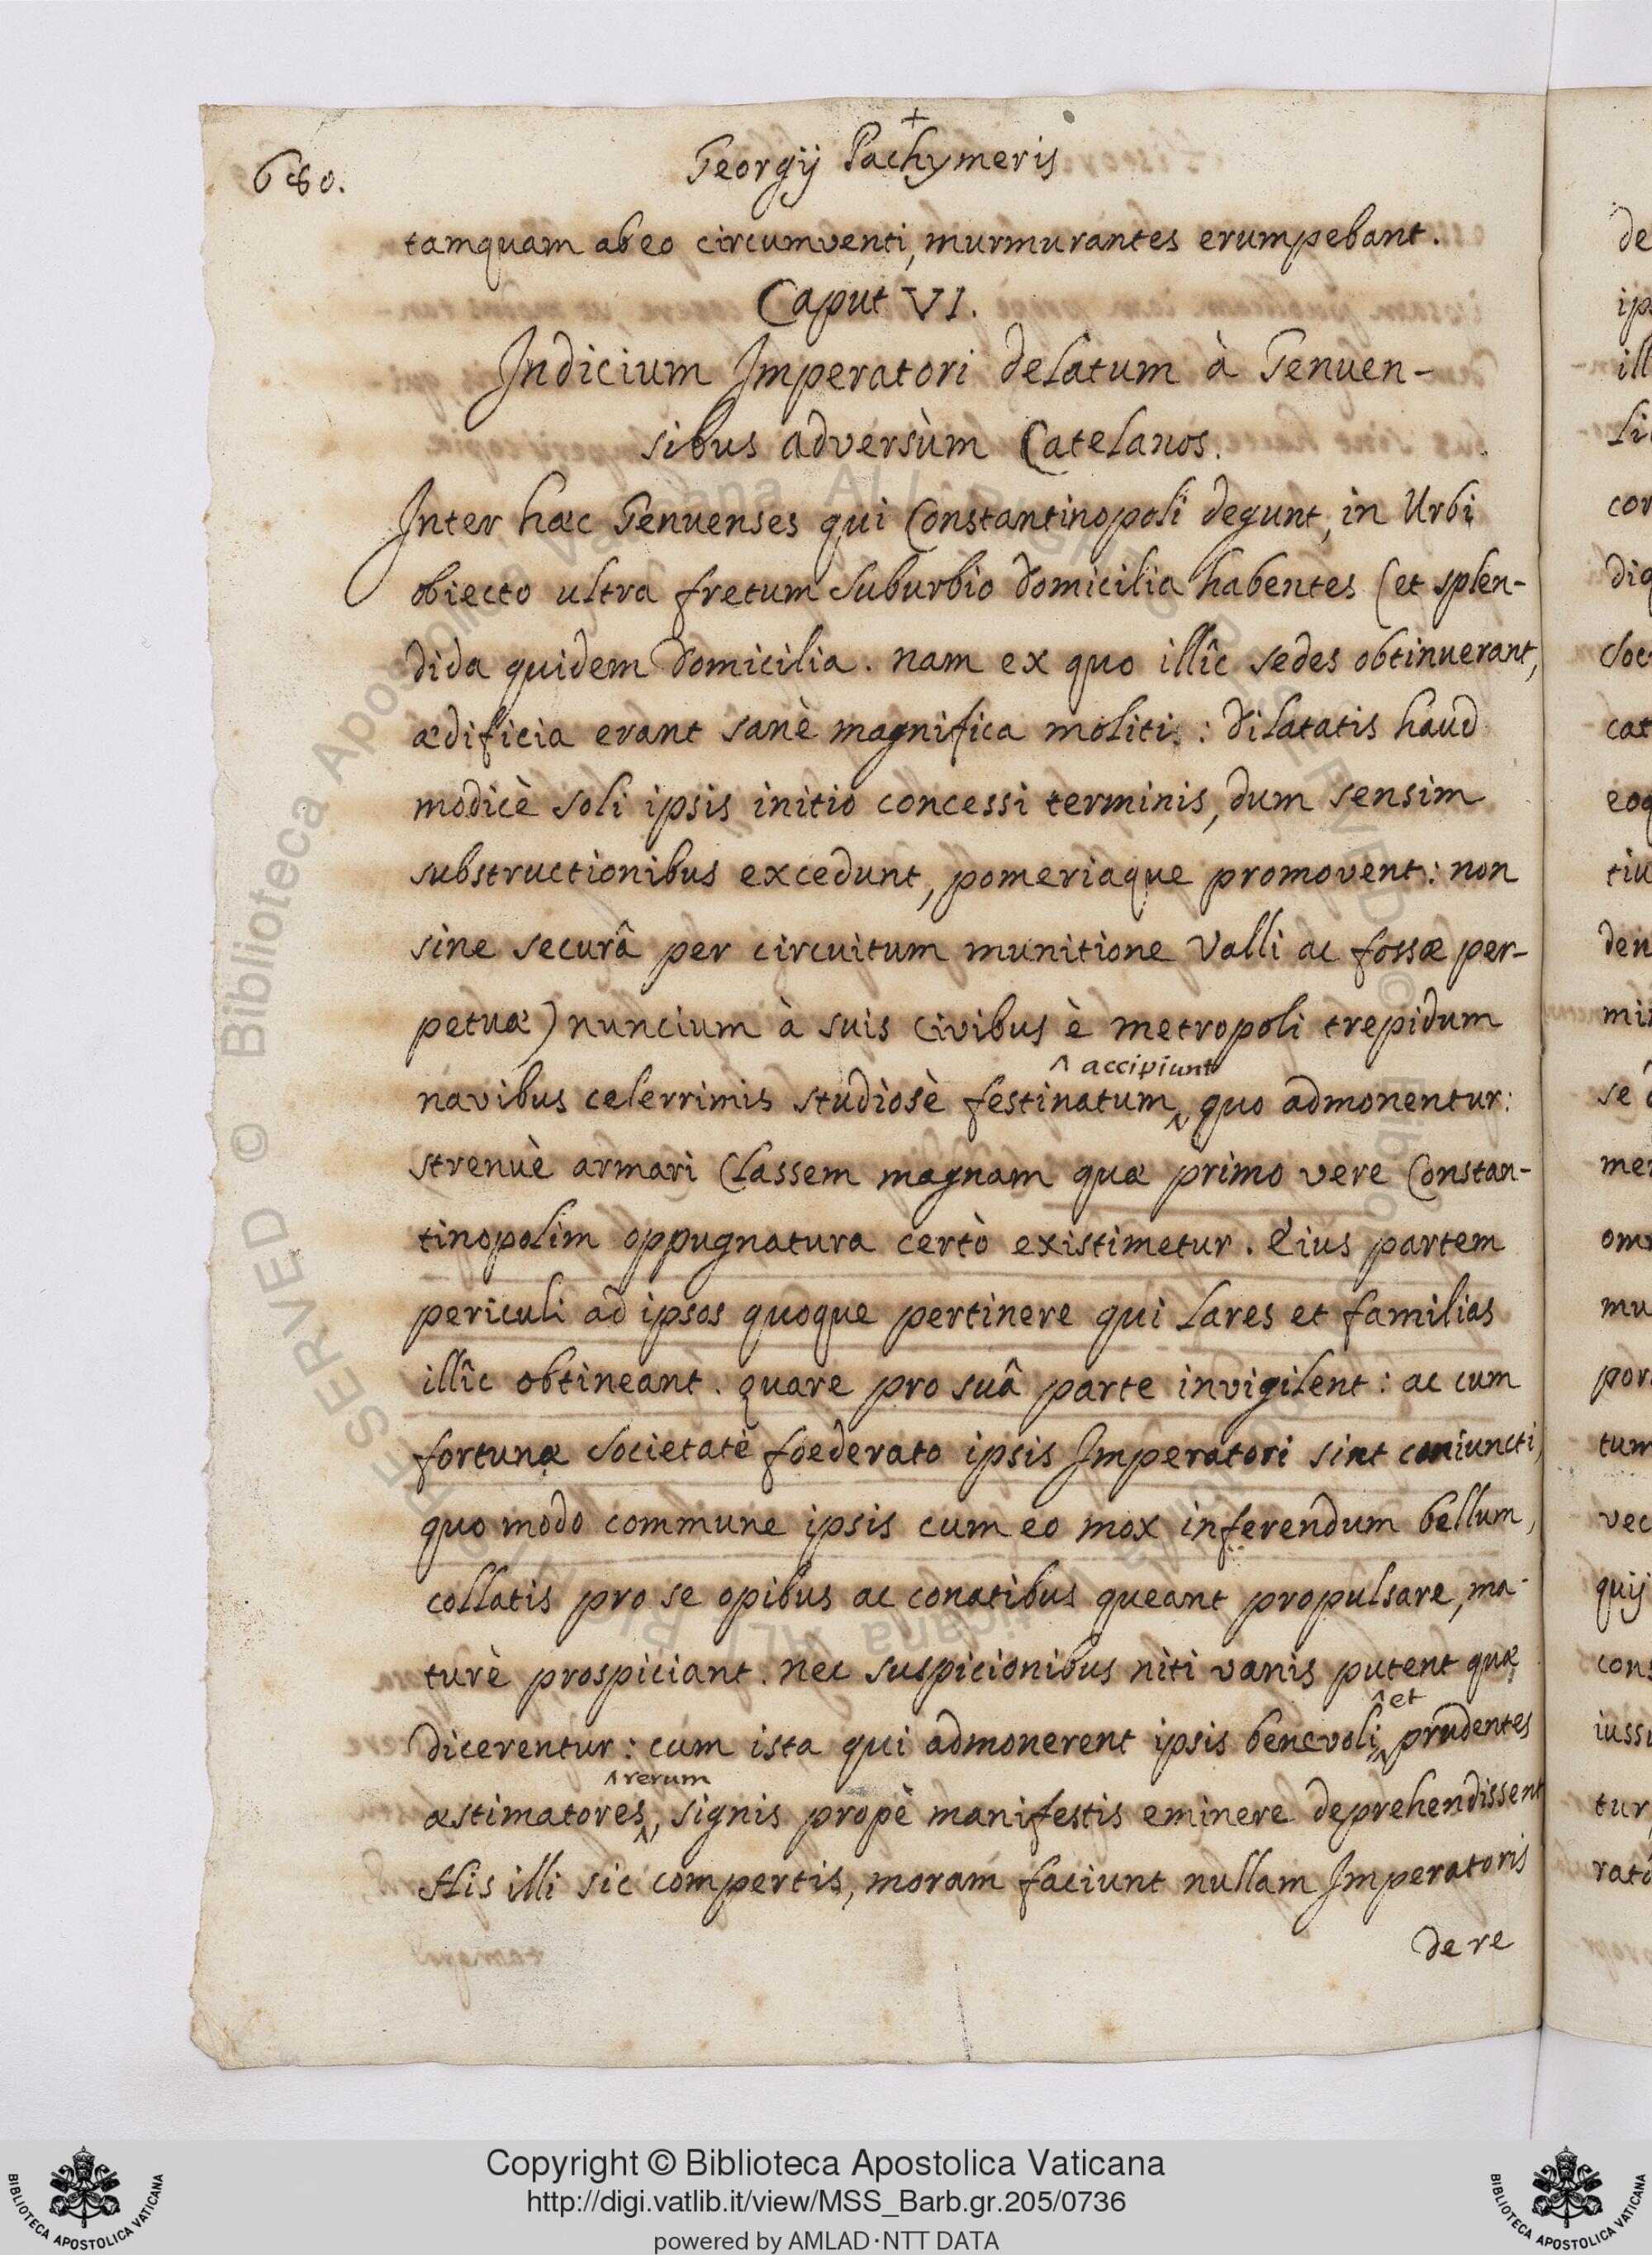 680.
Georgij Pachymeris
tamquam ab eo circumventi, murmurantes erumpebant.
Caput VI.
Indicium Imperatori delatum à Genuen-
sibus adversùm Catelanos.
Inter hæc Genuenses qui Constantinopoli degunt, in Urbi
obiecto ultra fretum suburbio domicilia habentes (et splen-
dida quidem domicilia. nam ex quo illîc sedes obtinuerant,
ædificia erant sanè magnifica moliti: dilatatis haud
modicè soli ipsis initio concessi terminis, dum sensim
substructionibus excedunt, pomeriaque promovent: non
sine securâ per circuitum munitione valli ac fossæ per-
petuæ) nuncium à suis civibus è metropoli trepidum
^ accipiunt
navibus celerrimis studiosè festinatum^ quo admonentur:
strenuè armari Classem magnam quæ primo vere Constan-
tinopolim oppugnatura certò existimetur. Eius partem
periculi ad ipsos quoque pertinere qui Lares et familias
illîc obtineant. quare pro suâ parte invigilent: ac cum
fortunæ societate foederato ipsis Imperatori sint coniuncti,
quo modo commune ipsis cum eo mox inferendum bellum,
collatis pro se opibus ac conatibus queant propulsare, ma-
turè prospiciant. nec suspicionibus niti vanis putent quæ
^ et
dicerentur: cum ista qui admonerent ipsis benevoli^ prudentes
^ rerum
æstimatores^, signis propè manifestis eminere deprehendissent
His illi sic compertis, moram faciunt nullam Imperatoris
de re
Copyright © Biblioteca Apostolica Vaticana
http://digi.vatlib.it/view/MSS_Barb.gr.205/0736
powered by AMLAD·NTT DATA
BIBLIOTECA APOSTOLICA VATICANA
BIBLIOTECA APOSTOLICA VATICANA